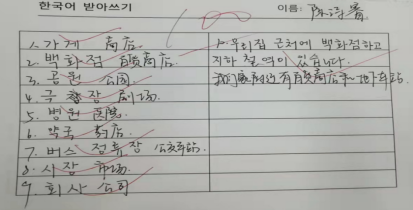 한국어 받아쓰기
이름:
1. 가게 商店
2. 백화점 百货商店
3. 공원 公园
4. 극장 剧场
5. 병원 医院
6. 약국 药店
7. 버스 정류장 公交车站
8. 시장 市场
9. 회사 公司
1. 우리집 근처에 백화점하고
지하철역이 있습니다.
我们家附近有百货商店和地铁站